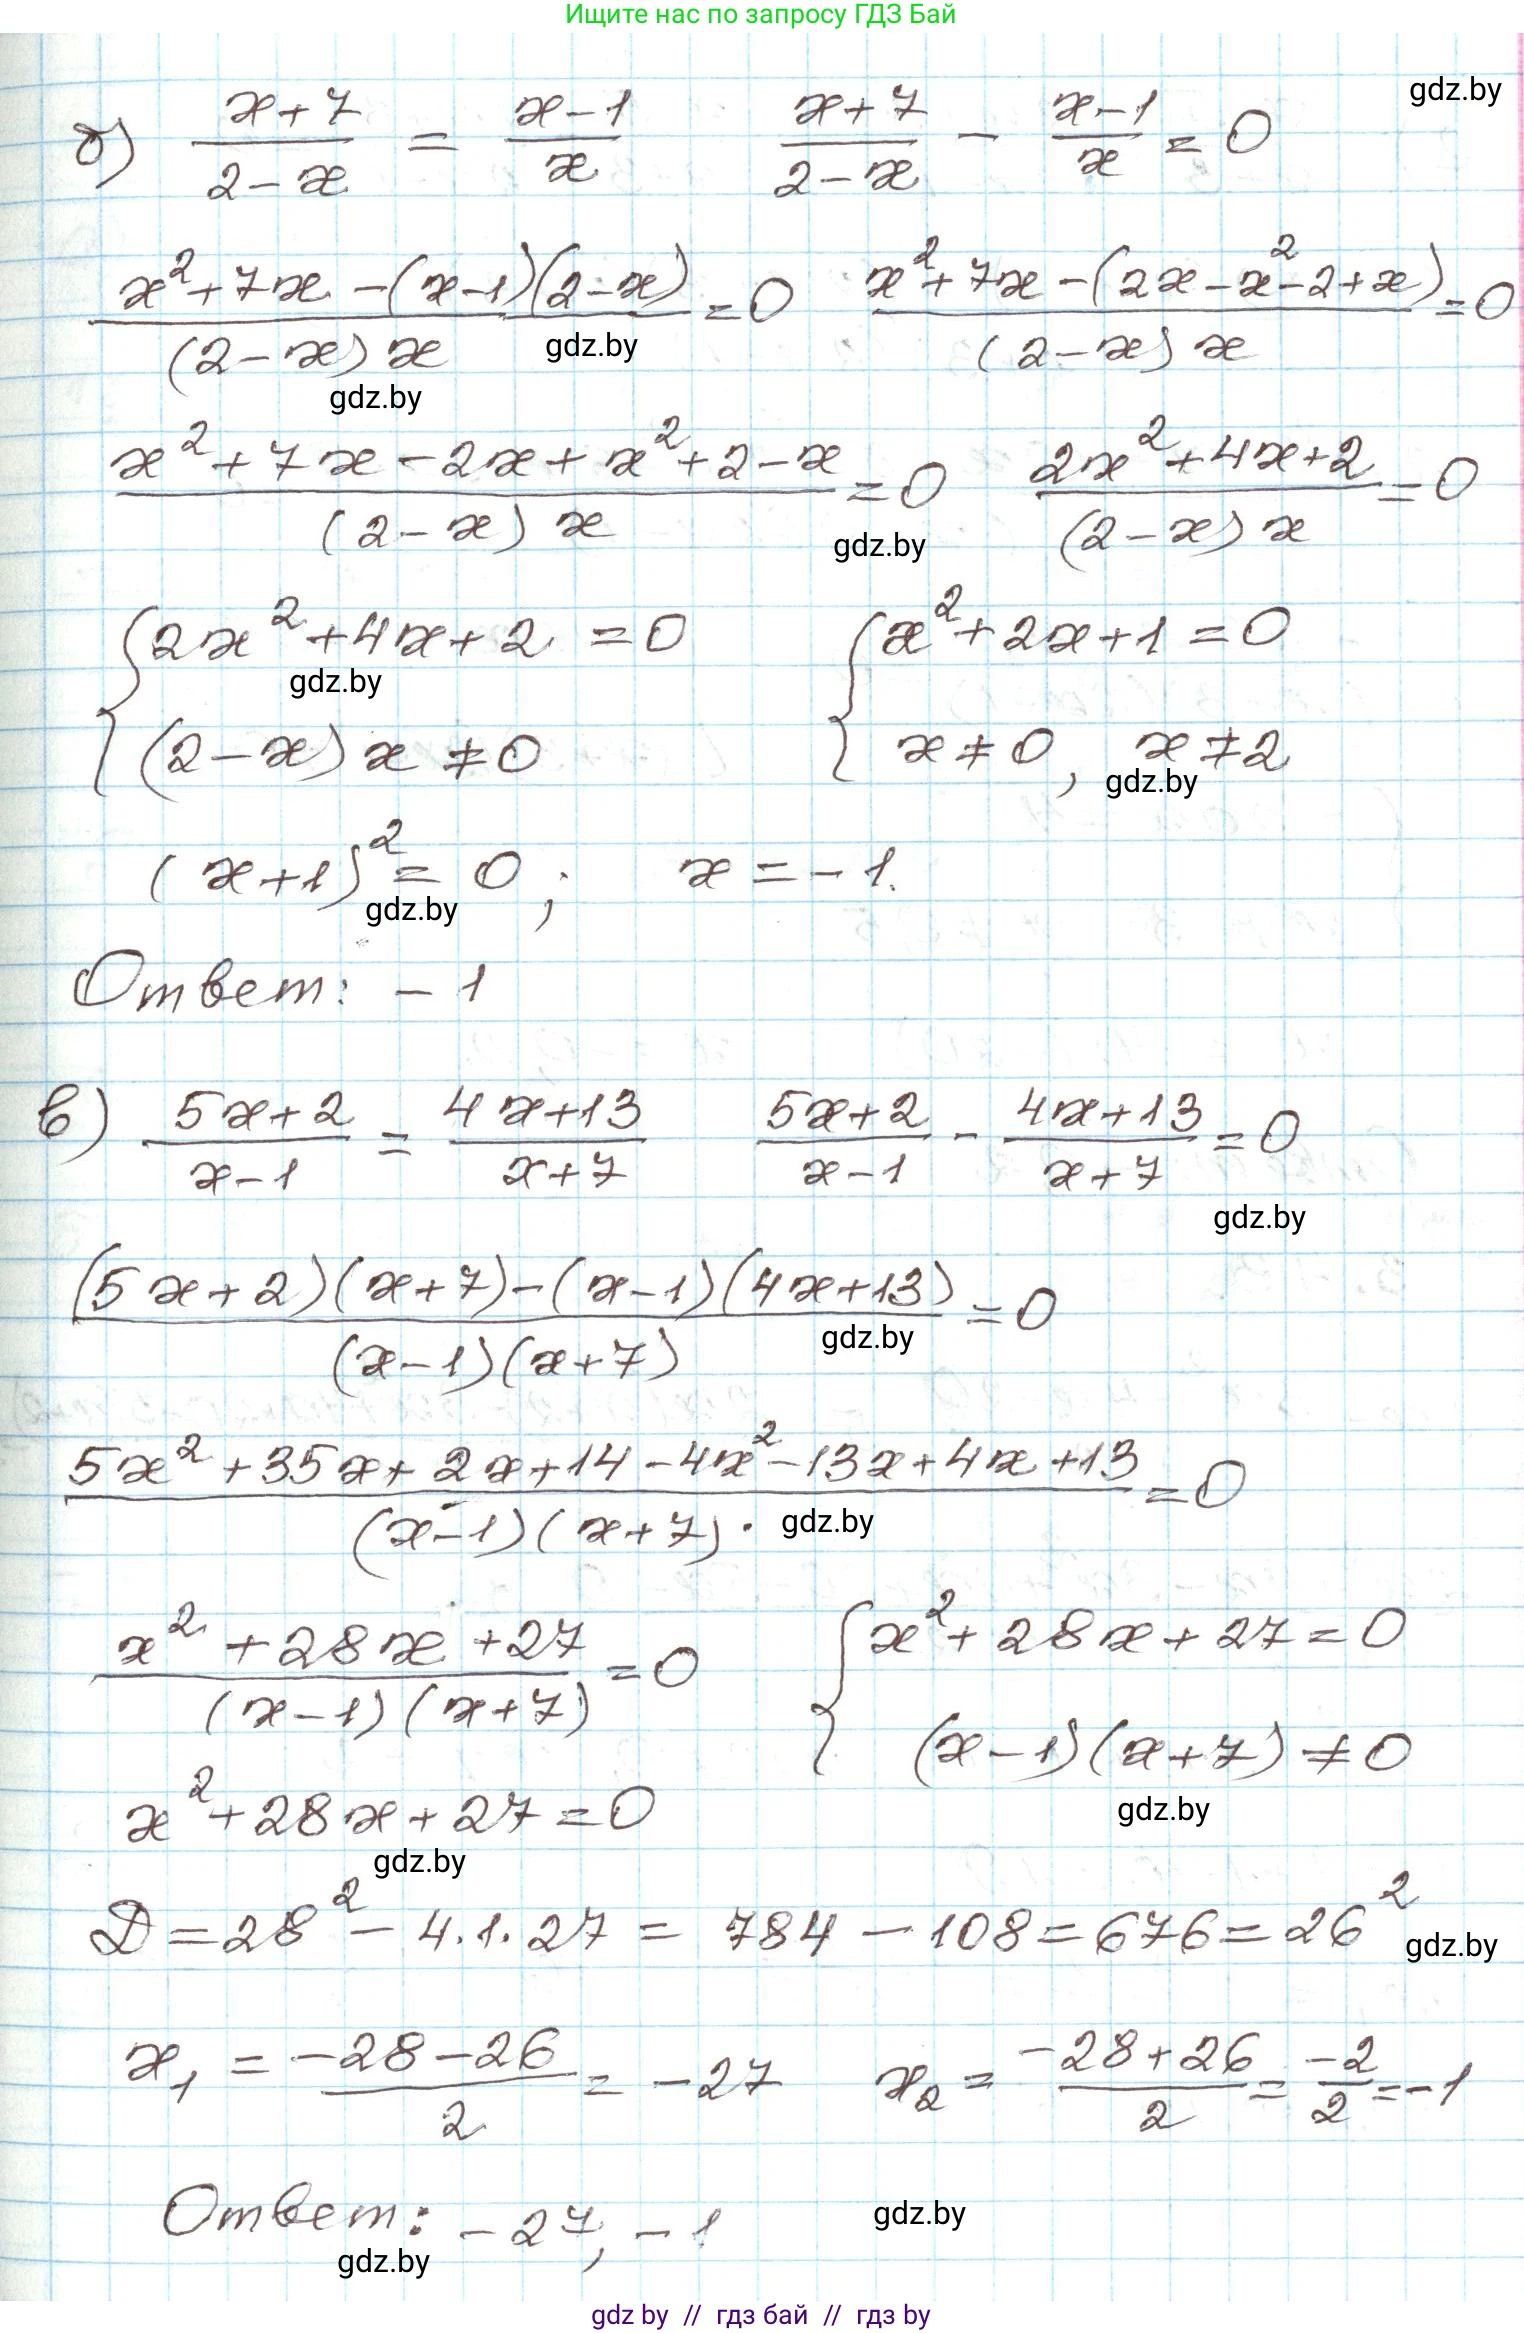 Ищите нас по запросу ГДЗ Бай
gdz.by
б) (x+7)/(2-x) = (x-1)/x   (x+7)/(2-x) - (x-1)/x = 0
(x²+7x-(x-1)(2-x))/((2-x)x) = 0   (x²+7x-(2x-x²-2+x))/((2-x)x) = 0
gdz.by
gdz.by
(x²+7x-2x+x²+2-x)/((2-x)x) = 0   (2x²+4x+2)/((2-x)x) = 0
gdz.by
{2x²+4x+2=0   {x²+2x+1=0
gdz.by
(2-x)x≠0   x≠0, x≠2
gdz.by
(x+1)²=0;   x=-1.
gdz.by
Ответ: -1
в) (5x+2)/(x-1) = (4x+13)/(x+7)   (5x+2)/(x-1) - (4x+13)/(x+7) = 0
gdz.by
((5x+2)(x+7)-(x-1)(4x+13))/((x-1)(x+7)) = 0
gdz.by
(5x²+35x+2x+14-4x²-13x+4x+13)/((x-1)(x+7)) = 0
gdz.by
(x²+28x+27)/((x-1)(x+7)) = 0   {x²+28x+27=0
(x-1)(x+7)≠0
gdz.by
x²+28x+27=0
gdz.by
D=28²-4·1·27 = 784-108=676=26²
gdz.by
x₁ = (-28-26)/2 = -27   x₂ = (-28+26)/2 = -2/2 = -1
Ответ: -27, -1
gdz.by
gdz.by
gdz by // гдз бай // гдз by